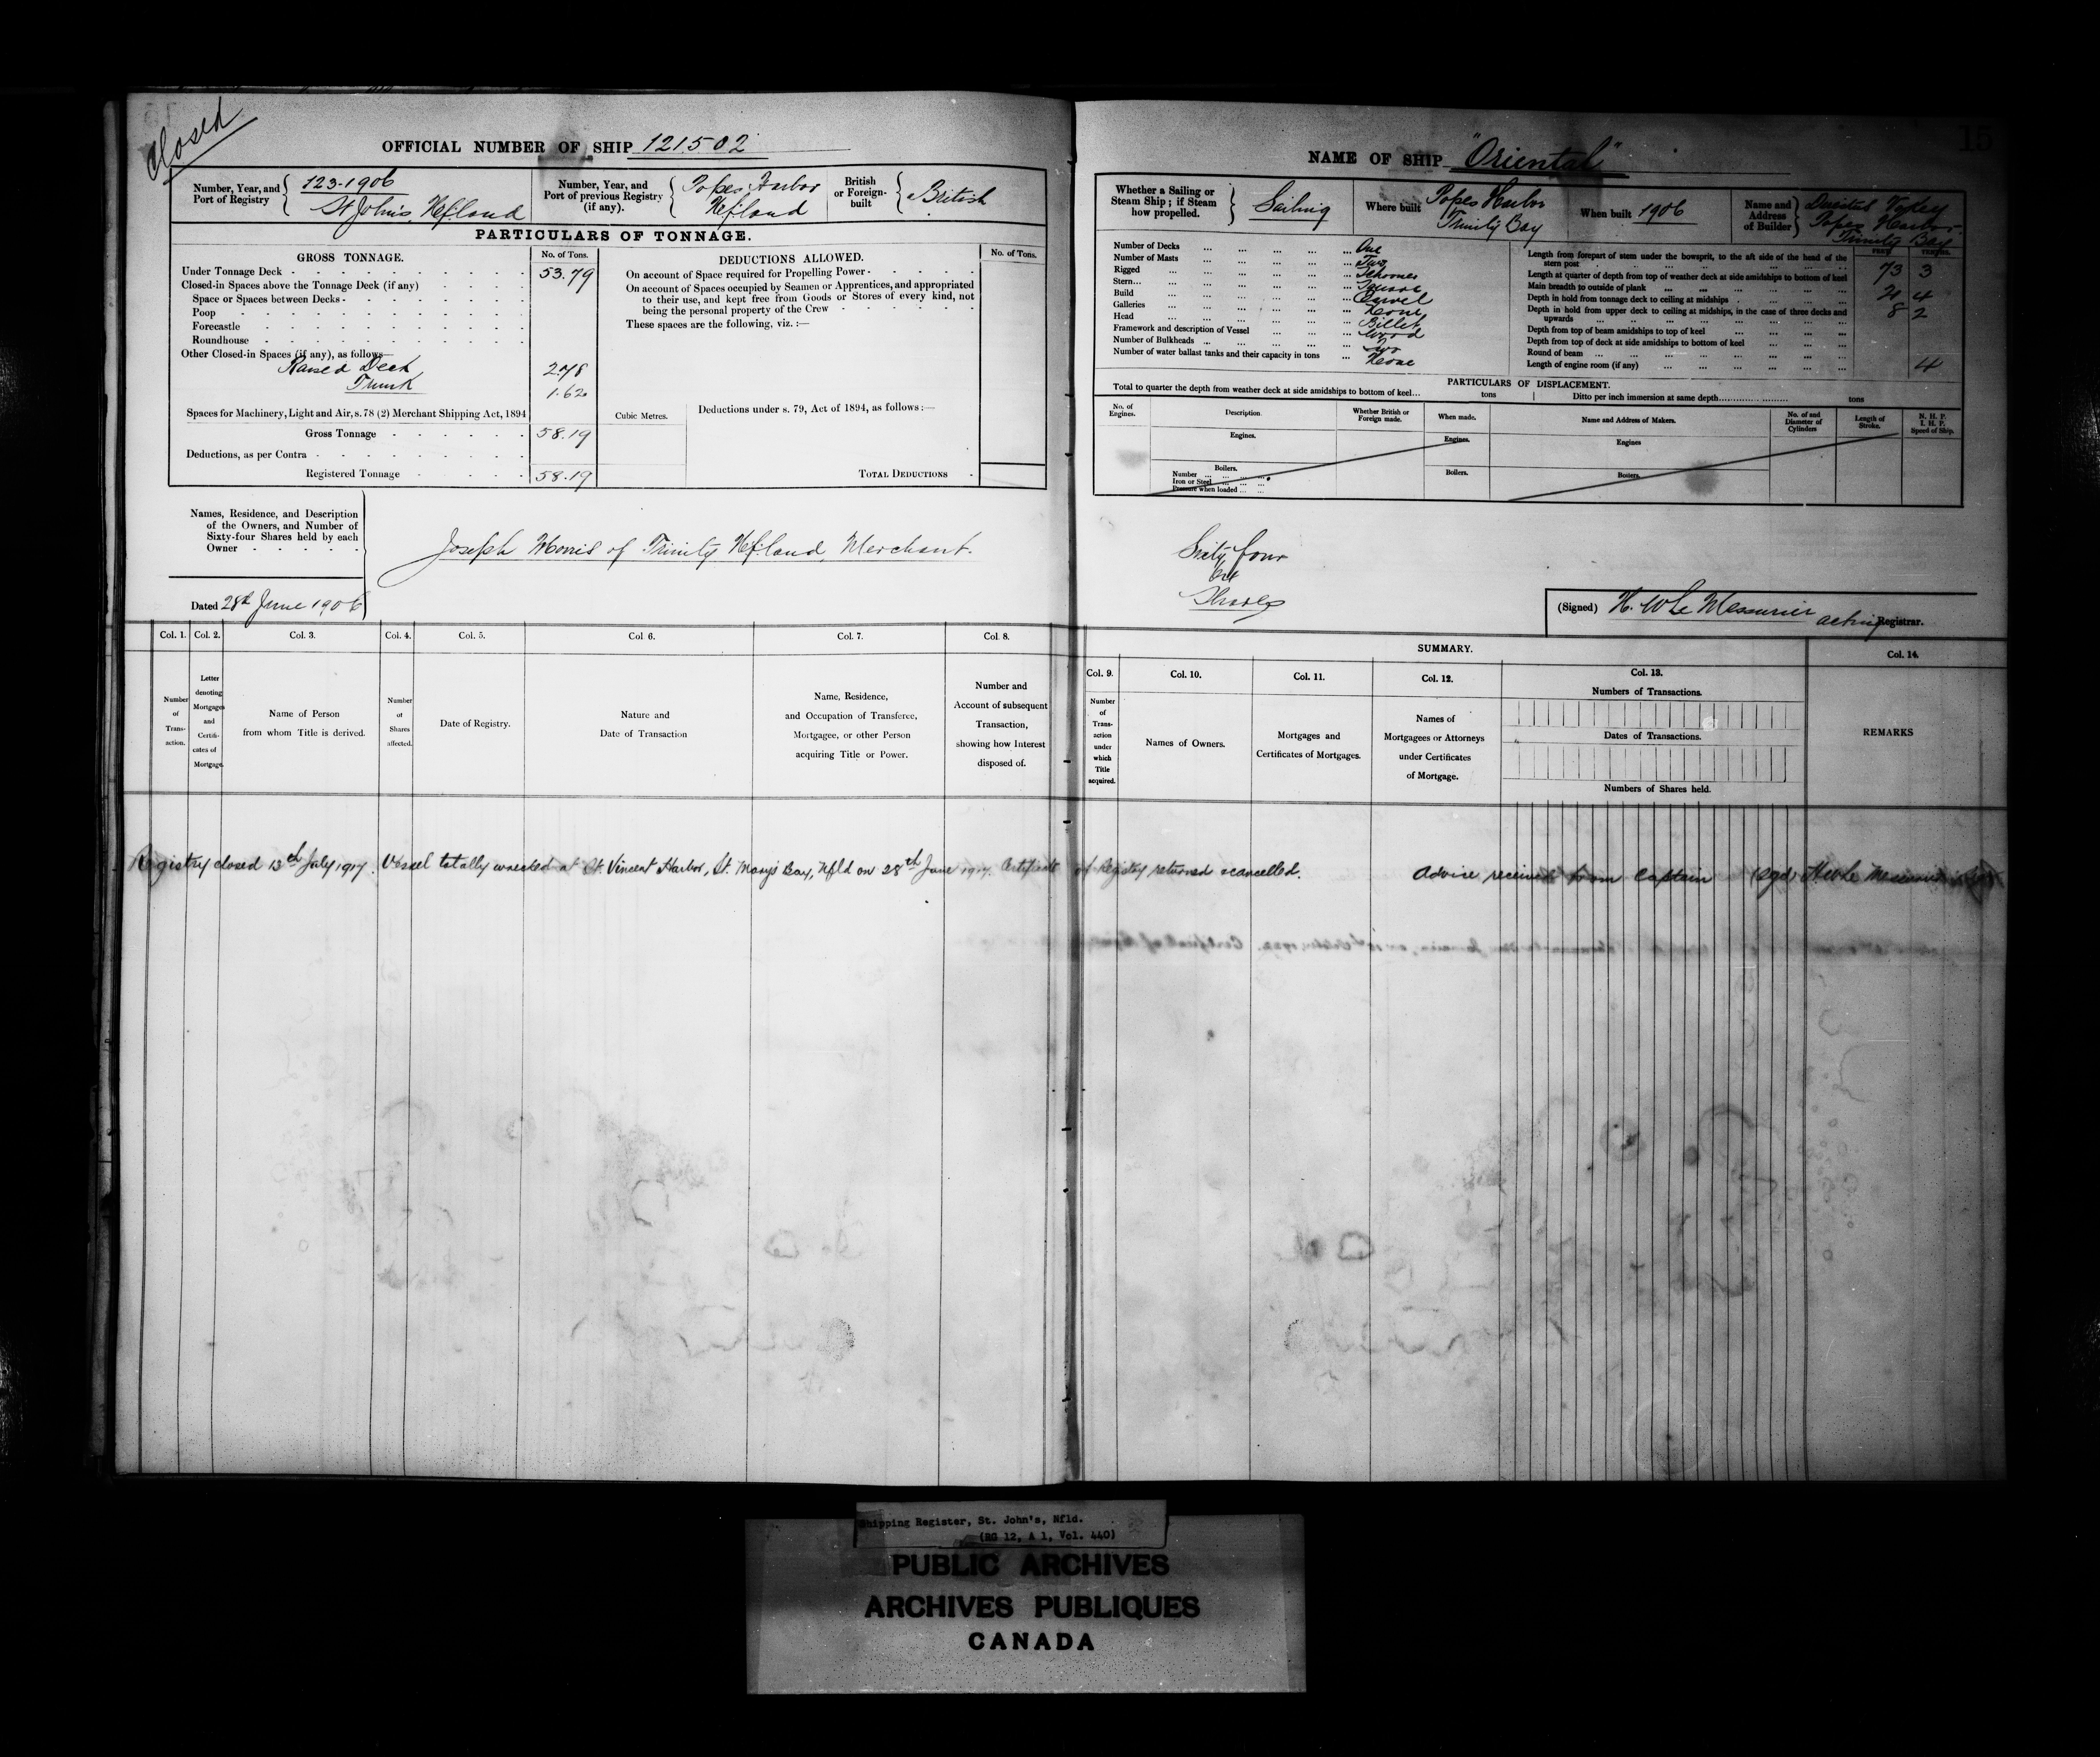 Closed
OFFICIAL NUMBER OF SHIP 121502
Number, Year, and Port of Registry
123-1906
St John's Nfland
Number, Year, and Port of previous Registry (if any).
Popes Harbor
Nfland
British or Foreign-built
British
PARTICULARS OF TONNAGE.
GROSS TONNAGE. No. of Tons.
Under Tonnage Deck 53.79
Closed-in Spaces above the Tonnage Deck (if any)
Space or Spaces between Decks
Poop
Forecastle
Roundhouse
Other Closed-in Spaces (if any), as follows
Raised Deck 2.78
Trunk 1.62
Spaces for Machinery, Light and Air, s. 78 (2) Merchant Shipping Act, 1894
Gross Tonnage 58.19
Deductions, as per Contra
Registered Tonnage 58.19
DEDUCTIONS ALLOWED. No. of Tons.
On account of Space required for Propelling Power
On account of Spaces occupied by Seamen or Apprentices, and appropriated
to their use, and kept free from Goods or Stores of every kind, not
being the personal property of the Crew
These spaces are the following, viz. :—
Cubic Metres.
Deductions under s. 79, Act of 1894, as follows :—
TOTAL DEDUCTIONS
Names, Residence, and Description
of the Owners, and Number of
Sixty-four Shares held by each
Owner
Joseph Morris of Trinity Nfland, Merchant.
Dated 28th June 1906
Col. 1. Col. 2. Col. 3. Col. 4. Col. 5. Col. 6. Col. 7. Col. 8.
Number of Trans- action.
Letter denoting Mortgages and Certifi- cates of Mortgage.
Name of Person from whom Title is derived.
Number of Shares affected.
Date of Registry.
Nature and Date of Transaction
Name, Residence, and Occupation of Transferee, Mortgagee, or other Person acquiring Title or Power.
Number and Account of subsequent Transaction, showing how Interest disposed of.
15
NAME OF SHIP "Oriental"
Whether a Sailing or Steam Ship ; if Steam how propelled.
Sailing
Where built
Popes Harbor
Trinity Bay
When built 1906
Name and Address of Builder
Popes Harbor
Trinity Bay
Number of Decks One
Number of Masts Two
Rigged Schooner
Stern Square
Build Carvel
Galleries None
Head Billet
Framework and description of Vessel Wood
Number of Bulkheads Two
Number of water ballast tanks and their capacity in tons None
FEET TENTHS.
Length from forepart of stem under the bowsprit, to the aft side of the head of the
stern post 73 3
Length at quarter of depth from top of weather deck at side amidships to bottom of keel
Main breadth to outside of plank 21 4
Depth in hold from tonnage deck to ceiling at midships 8 2
Depth in hold from upper deck to ceiling at midships, in the case of three decks and
upwards
Depth from top of beam amidships to top of keel
Depth from top of deck at side amidships to bottom of keel
Round of beam 4
Length of engine room (if any)
PARTICULARS OF DISPLACEMENT.
Total to quarter the depth from weather deck at side amidships to bottom of keel... tons Ditto per inch immersion at same depth tons
No. of Engines. Description. Whether British or Foreign made. When made. Name and Address of Makers. No. of and Diameter of Cylinders Length of Stroke. N. H. P. I. H. P. Speed of Ship.
Engines. Engines. Engines
Boilers. Boilers. Boilers.
Number
Iron or Steel
Pressure when loaded
Sixty four
Shares
(Signed) H. W Le Messurier
acting Registrar.
SUMMARY.
Col. 9. Col. 10. Col. 11. Col. 12. Col. 13. Col. 14.
Number of Trans- action under which Title acquired.
Names of Owners.
Mortgages and Certificates of Mortgages.
Names of Mortgagees or Attorneys under Certificates of Mortgage.
Numbers of Transactions.
Dates of Transactions.
Numbers of Shares held.
REMARKS
Registry closed 13th July 1917. Vessel totally wrecked at St. Vincent Harbor, St. Mary's Bay, Nfld on 28th June 1917. Certificate of Registry returned & cancelled. Advice received from Captain (Sgd) H W Le Messurier
Shipping Register, St. John's, Nfld.
(RG 12, A 1, Vol. 440)
PUBLIC ARCHIVES
ARCHIVES PUBLIQUES
CANADA